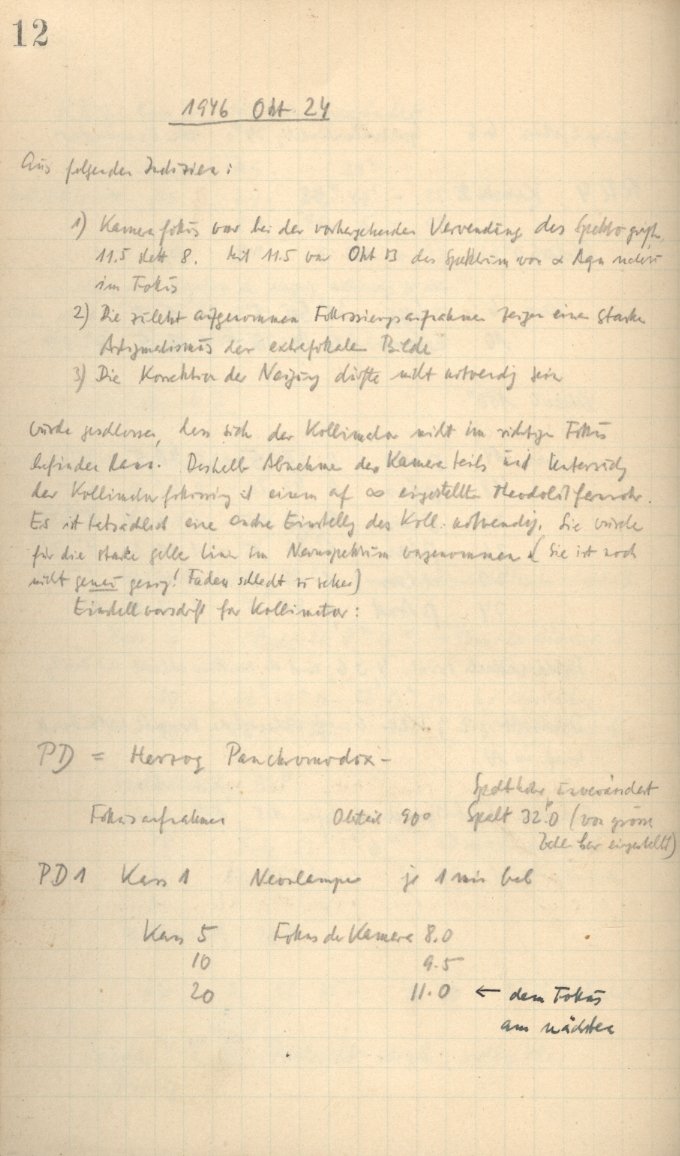 12
1946 Okt 24
Aus folgenden Indizien:
1) Kamerafokus war bei der vorhergehenden Verwendung des Spektrografen
11.5 statt 8. Mit 11.5 war Okt 13 das Spektrum von α Aqu
im Fokus
2) Die zuletzt aufgenommen Fokussierungsaufnahmen zeigen einen starken
Astigmatismus der extrafokalen Bilde
3) Die Korrektion der Neigung dürfte nicht notwendig sein
wurde geschlossen, dass sich der Kollimator nicht im richtigen Fokus
befinden kann. Deshalb Abnahme des Kamerateils und Untersuchg
der Kollimatorfokussierung mit einem auf ∞ eingestellten Theodolitfernrohr.
Es ist tatsächlich eine andre Einstellg des Koll. notwendig. Sie wurde
für die starke gelbe Linie im Neonspektrum vorgenommen (Sie ist noch
nicht genau genug! Faden schlecht zu sehen)
Einstellvorschrift für Kollimator:
PD = Herzog Panchromodox-
Spalthöhe unverändert
Fokusaufnahmen 90° Spalt 32.0 (von grösse
her eingestellt)
PD1 Kass 1 Neonlampe je 1 min bel
Kass 5 Fokus der Kamera 8.0
10 9.5
20 11.0 ← dem Fokus
am nächsten